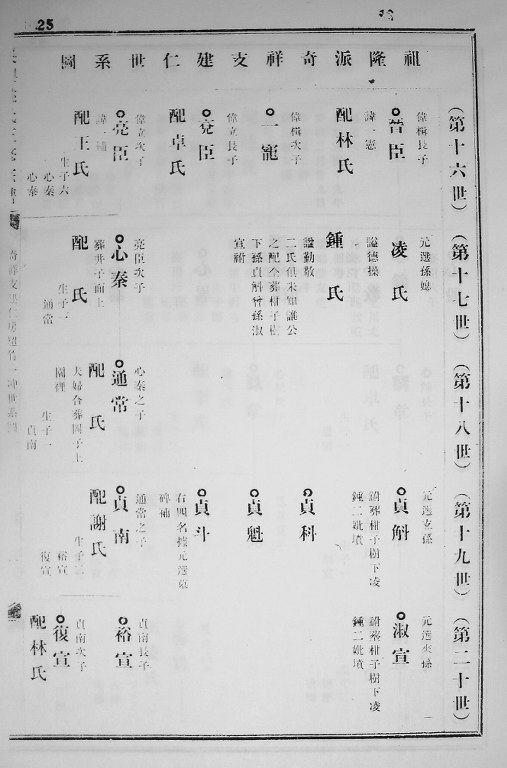 25
祖隆派奇祥支建仁世系圖
(第十六世)
偉楫長子
晉臣
諱一憲
配林氏
偉楫次子
一寵
偉立長子
亮臣
配卓氏
偉立次子
亮臣
諱一補
配王氏
生子六
心秦
心泰
(第十七世)
元選孫媳
凌氏
謚德操
鍾氏
謚勤敬
二氏俱未知誰公
之配仝葬柑子樹
下孫貞斛曾孫淑
宣祔
亮臣次子
心泰
葬井子面上
配 氏
生子一
通常
(第十八世)
心泰之子
通常
夫婦合葬園子上
園裡
配 氏
生子一
貞南
(第十九世)
元選玄孫
貞斛
祔葬柑子樹下凌
鍾二妣墳
貞科
貞魁
貞斗
右四名據元選墓
碑補
通常之子
貞南
配謝氏
生子二
裕宣
復宣
(第二十世)
元選來孫
淑宣
祔葬柑子樹下凌
鍾二妣墳
貞南長子
裕宣
貞南次子
復宣
配林氏